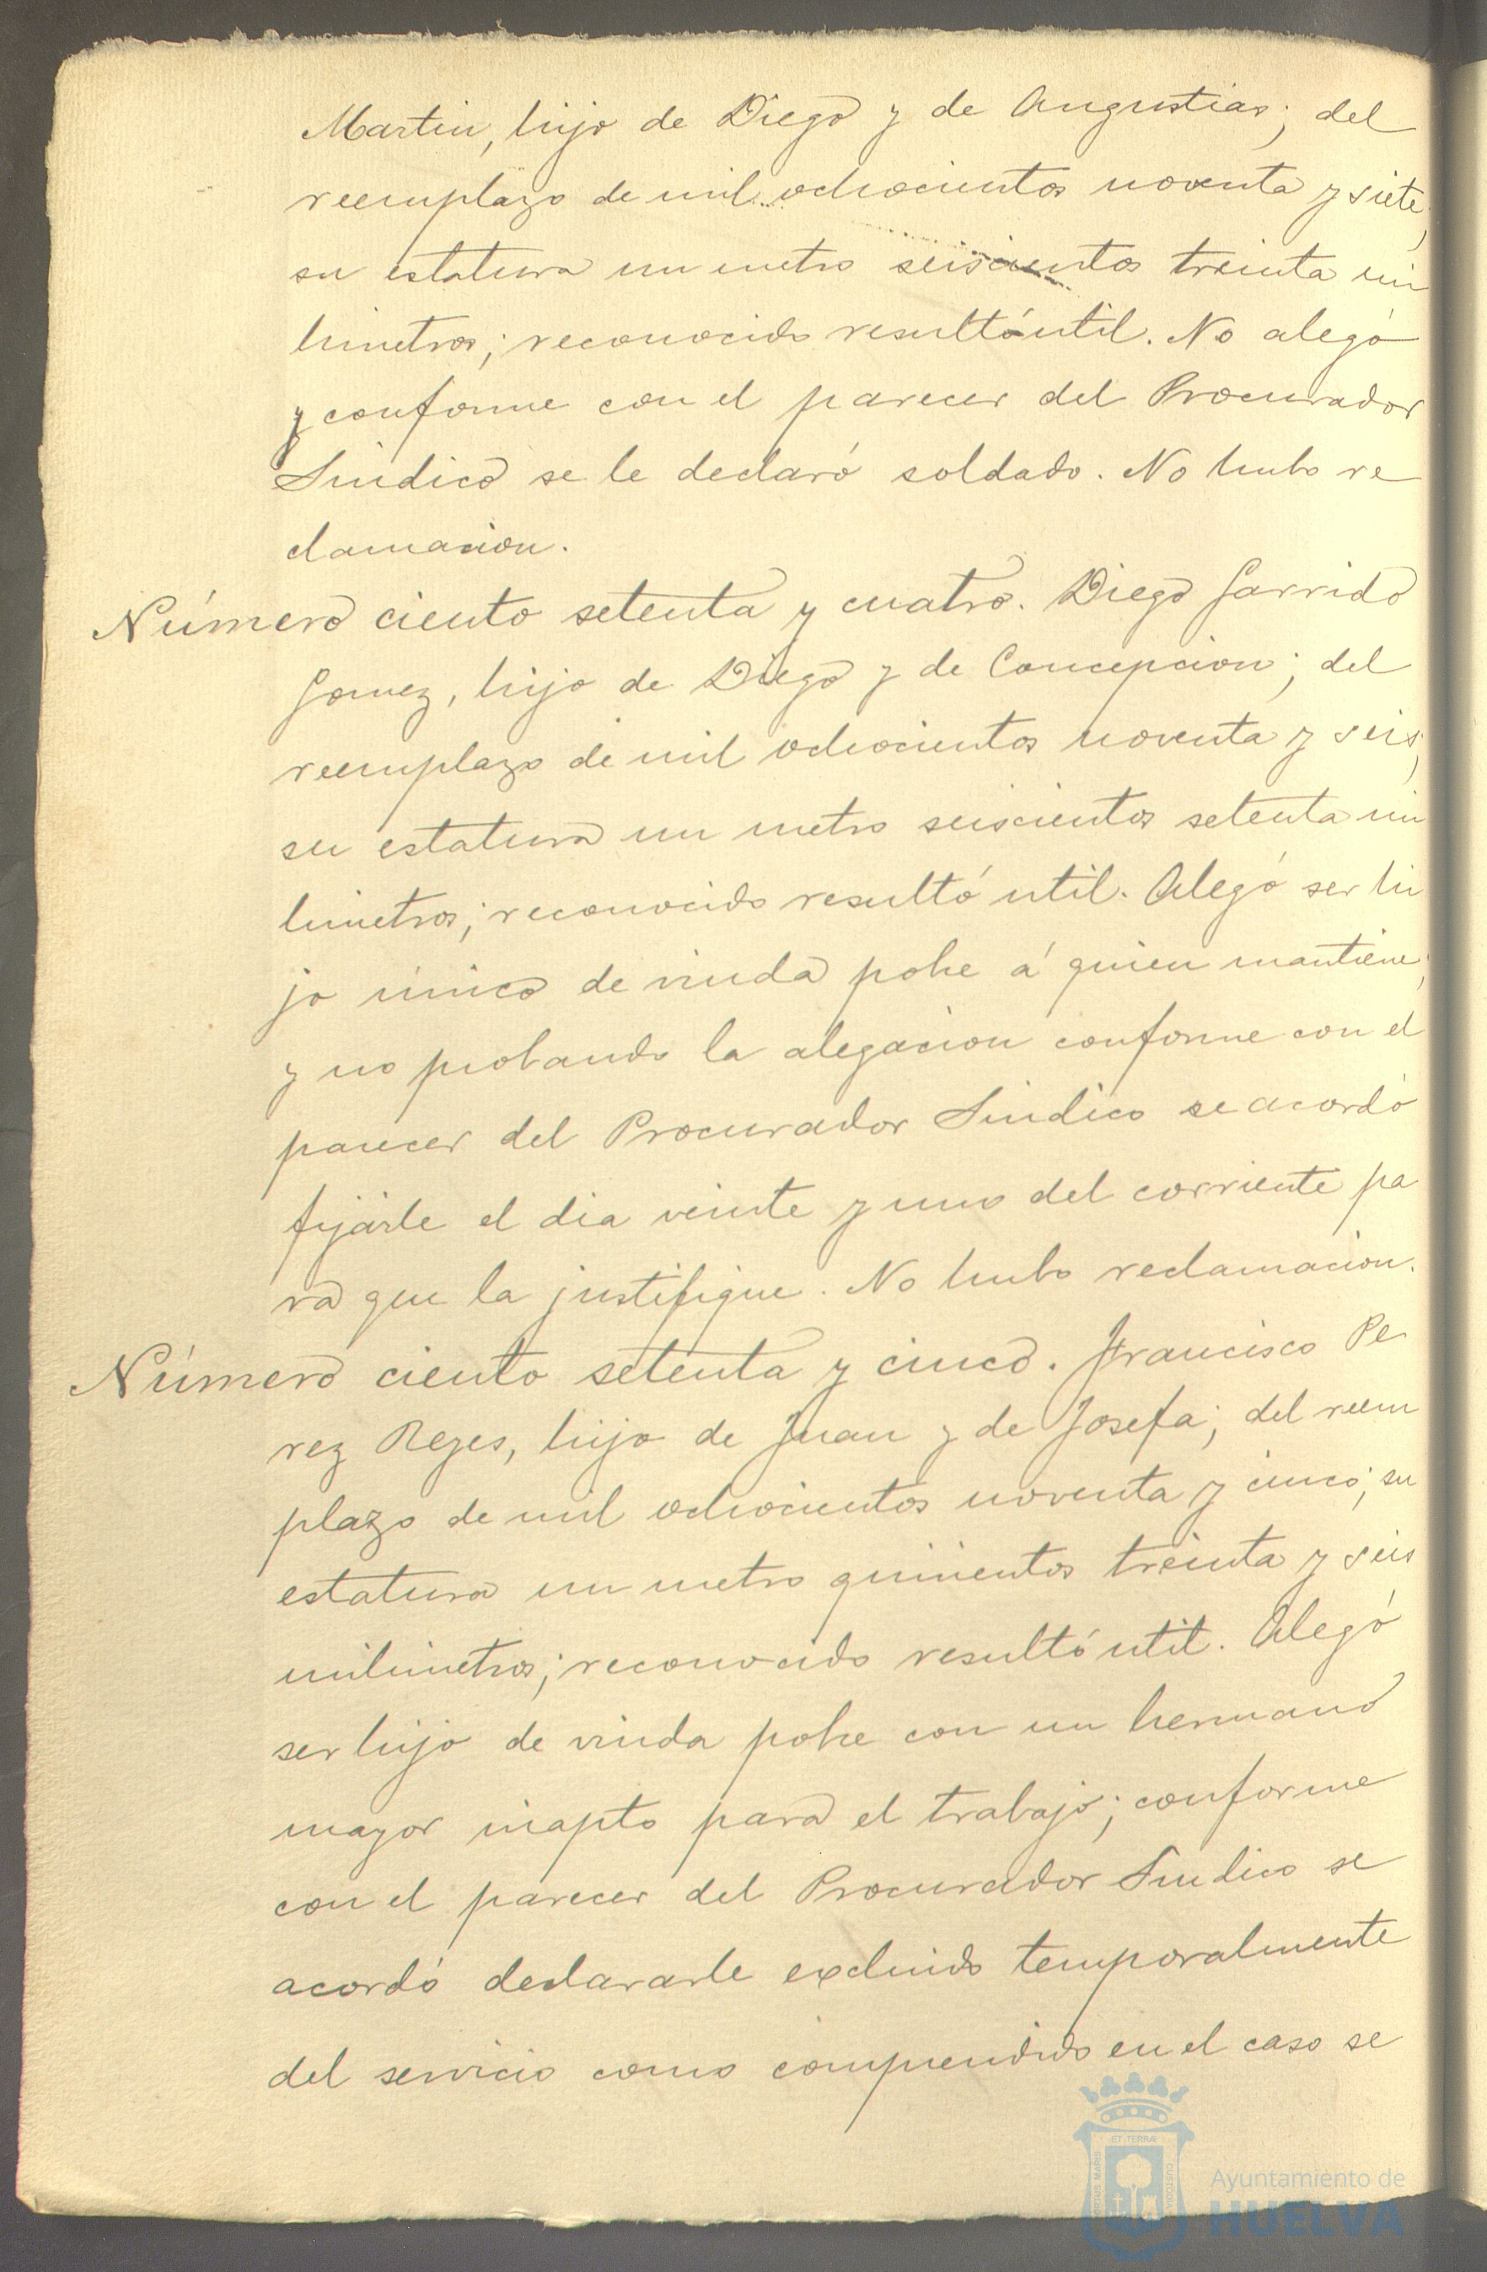 Martin, hijo de Diego y de Angustias; del
reemplazo de mil ochocientos noventa y siete;
su estatura un metro seiscientos treinta mi
limetros; reconocido resultó util. No alegó
y conforme con el parecer del Procurador
Sindico se le declaró soldado. No hubo re
clamacion.
Número ciento setenta y cuatro. Diego Garrido
Gomez, hijo de Diego y de Concepcion; del
reemplazo de mil ochocientos noventa y seis;
su estatura un metro seiscientos setenta mi
limetros; reconocido resultó util. Alegó ser hi
jo único de viuda pobre á quien mantiene;
y no probando la alegacion conforme con el
parecer del Procurador Sindico se acordó
fijárle el dia veinte y uno del corriente pa
ra que la justifique. No hubo reclamacion.
Número ciento setenta y cinco. Francisco Pe
rez Reyes, hijo de Juan y de Josefa; del reem
plazo de mil ochocientos noventa y cinco; su
estatura un metro quinientos treinta y seis
milimetros; reconocido resultó util. Alegó
ser hijo de viuda pobre con un hermano
mayor inapto para el trabajo; conforme
con el parecer del Procurador Sindico se
acordó declararle excluido temporalmente
del servicio como comprendido en el caso se
ET TERRAE
PORTUS MARIS
CUSTODIA
Ayuntamiento de
HUELVA